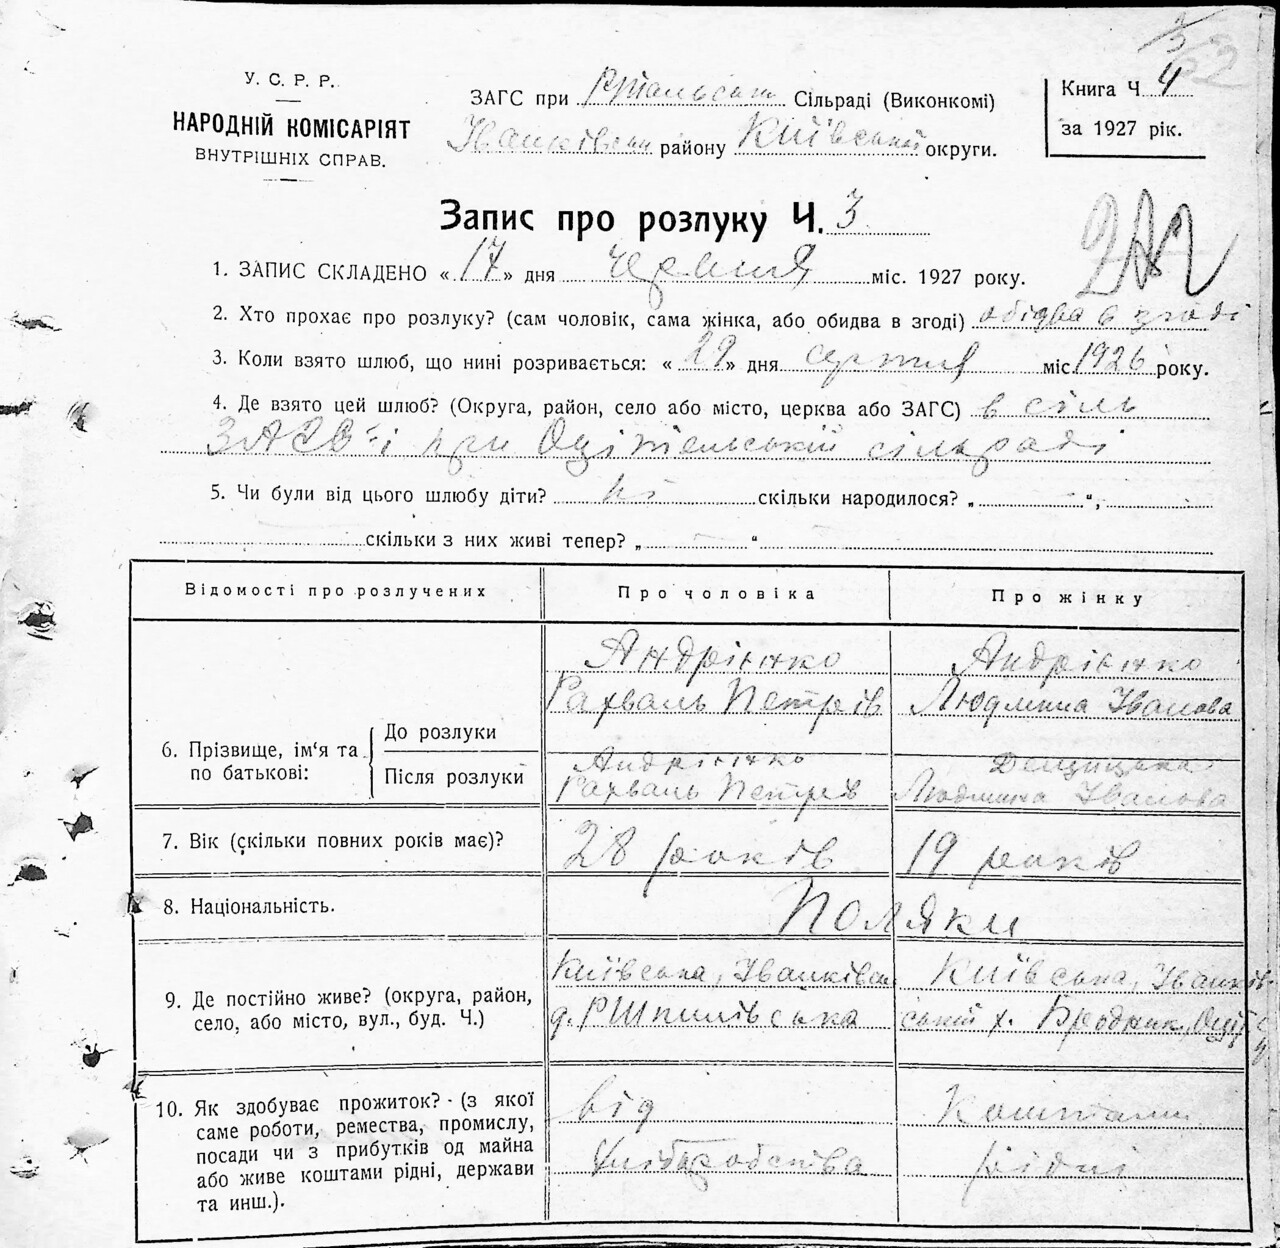 У. С. Р. Р.
НАРОДНІЙ КОМІСАРІЯТ
ВНУТРІШНІХ СПРАВ.
ЗАГС при Сільраді (Виконкомі)
Іванківськ району Київської округи.
Книга Ч 4
за 1927 рік.
Запис про розлуку Ч. 3
1. ЗАПИС СКЛАДЕНО « 17 » дня червня міс. 1927 року.
2. Хто прохає про розлуку? (сам чоловік, сама жінка, або обидва в згоді) обідва в згоді
3. Коли взято шлюб, що нині розривається: « 29 » дня серпня міс. 1926 року.
4. Де взято цей шлюб? (Округа, район, село або місто, церква або ЗАГС) в сіль
ЗАГС'і при Оцітельській сільраді
5. Чи були від цього шлюбу діти? ні скільки народилося? „ “,
скільки з них живі тепер? „ “
Відомості про розлучених
Про чоловіка
Про жінку
6. Прізвище, ім‘я та по батькові:
До розлуки
Андрієнко
Рахваль Петрів
Андрієнко
Людмила Іванова
Після розлуки
Андрієнко
Рахваль Петрів
Людмила Іванова
7. Вік (скільки повних років має)?
28 років
19 років
8. Національність.
Поляки
9. Де постійно живе? (округа, район,
село, або місто, вул., буд. Ч.)
Київська, Іванківськ
Київська, Іванків-
ський х. Бродник,
10. Як здобуває прожиток? - (з якої
саме роботи, ремества, промислу,
посади чи з прибутків од майна
або живе коштами рідні, держави
та инш.).
від
хліборобства
Коштами
рідні